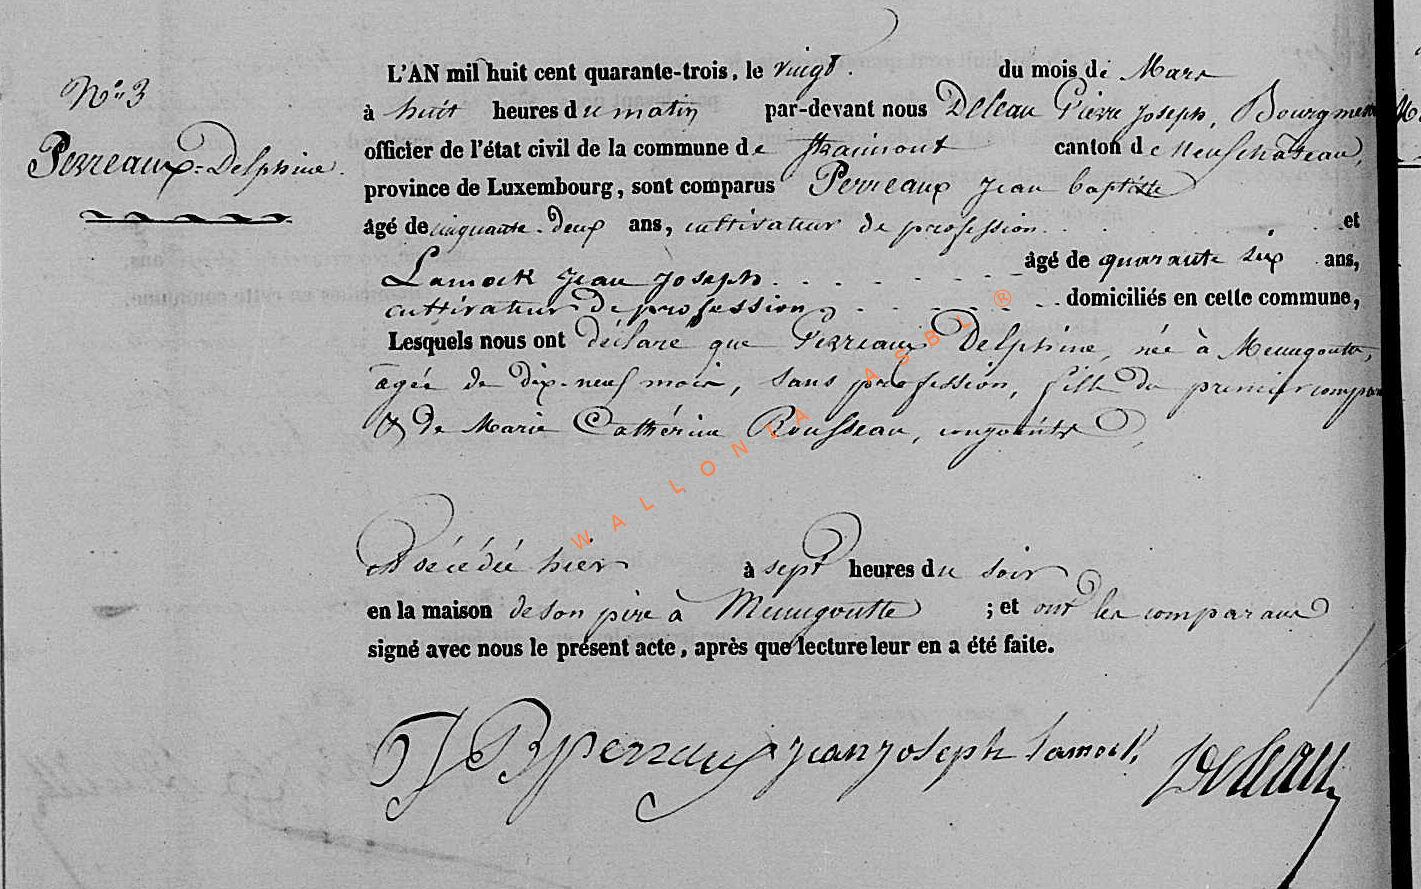 N° 3
Perreaux-Delphine.
L'AN mil huit cent quarante-trois, le vingt. du mois de Mars
à huit heures du matin par-devant nous Deleau Pierre Joseph, Bourgmest
officier de l'état civil de la commune de Straimont canton de Neufchateau,
province de Luxembourg, sont comparus Perreaux Jean baptiste
âgé de cinquante-deux ans, cultivateur de profession et
Lamock Jean Joseph âgé de quarante six ans,
cultivateur de profession, domiciliés en cette commune,
Lesquels nous ont déclaré que Perreaux Delphine, née à Menugoutte,
agée de dix-neuf mois, sans profession, fille du premier compar
& de Marie Cathérine Rousseau, conjoints,
est décédée hier à sept heures du soir
en la maison de son père à Menugoutte ; et ont les comparans
signé avec nous le présent acte, après que lecture leur en a été faite.
JBperreaux jean joseph Lamock Deleau
WALLONIA ASBL ®